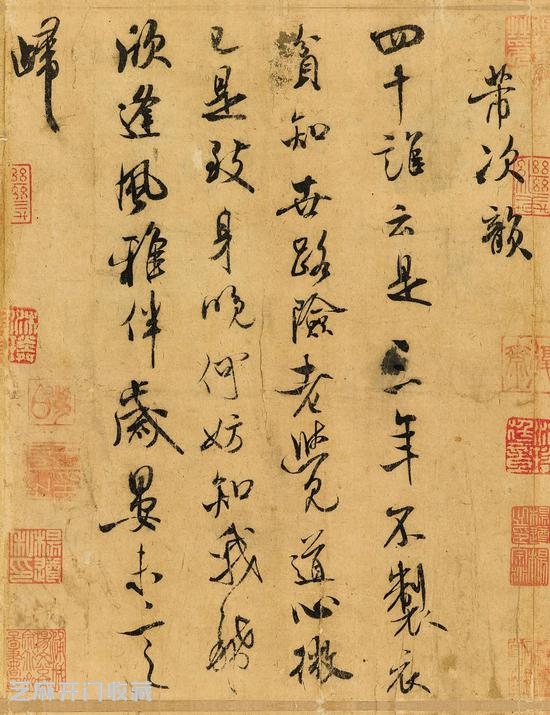 芾次韻
四十誰云是三年不製衣
貧知世路險老覺道心微
已是致身晚何妨知我稀
欣逢風雅伴歲晏未言
歸
沐璘
芝麻开门收藏